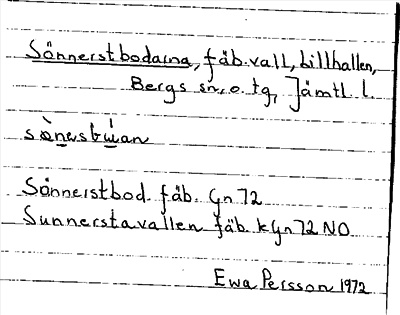 Sönnerstbodarna, fäb.vall, Lillhallen,
Bergs sn. o. tg, Jämtl. l.
Sönnerstbod. fäb. Gn 72
Sunnerstavallen fäb. kGn 72 NO
Ewa Persson 1972